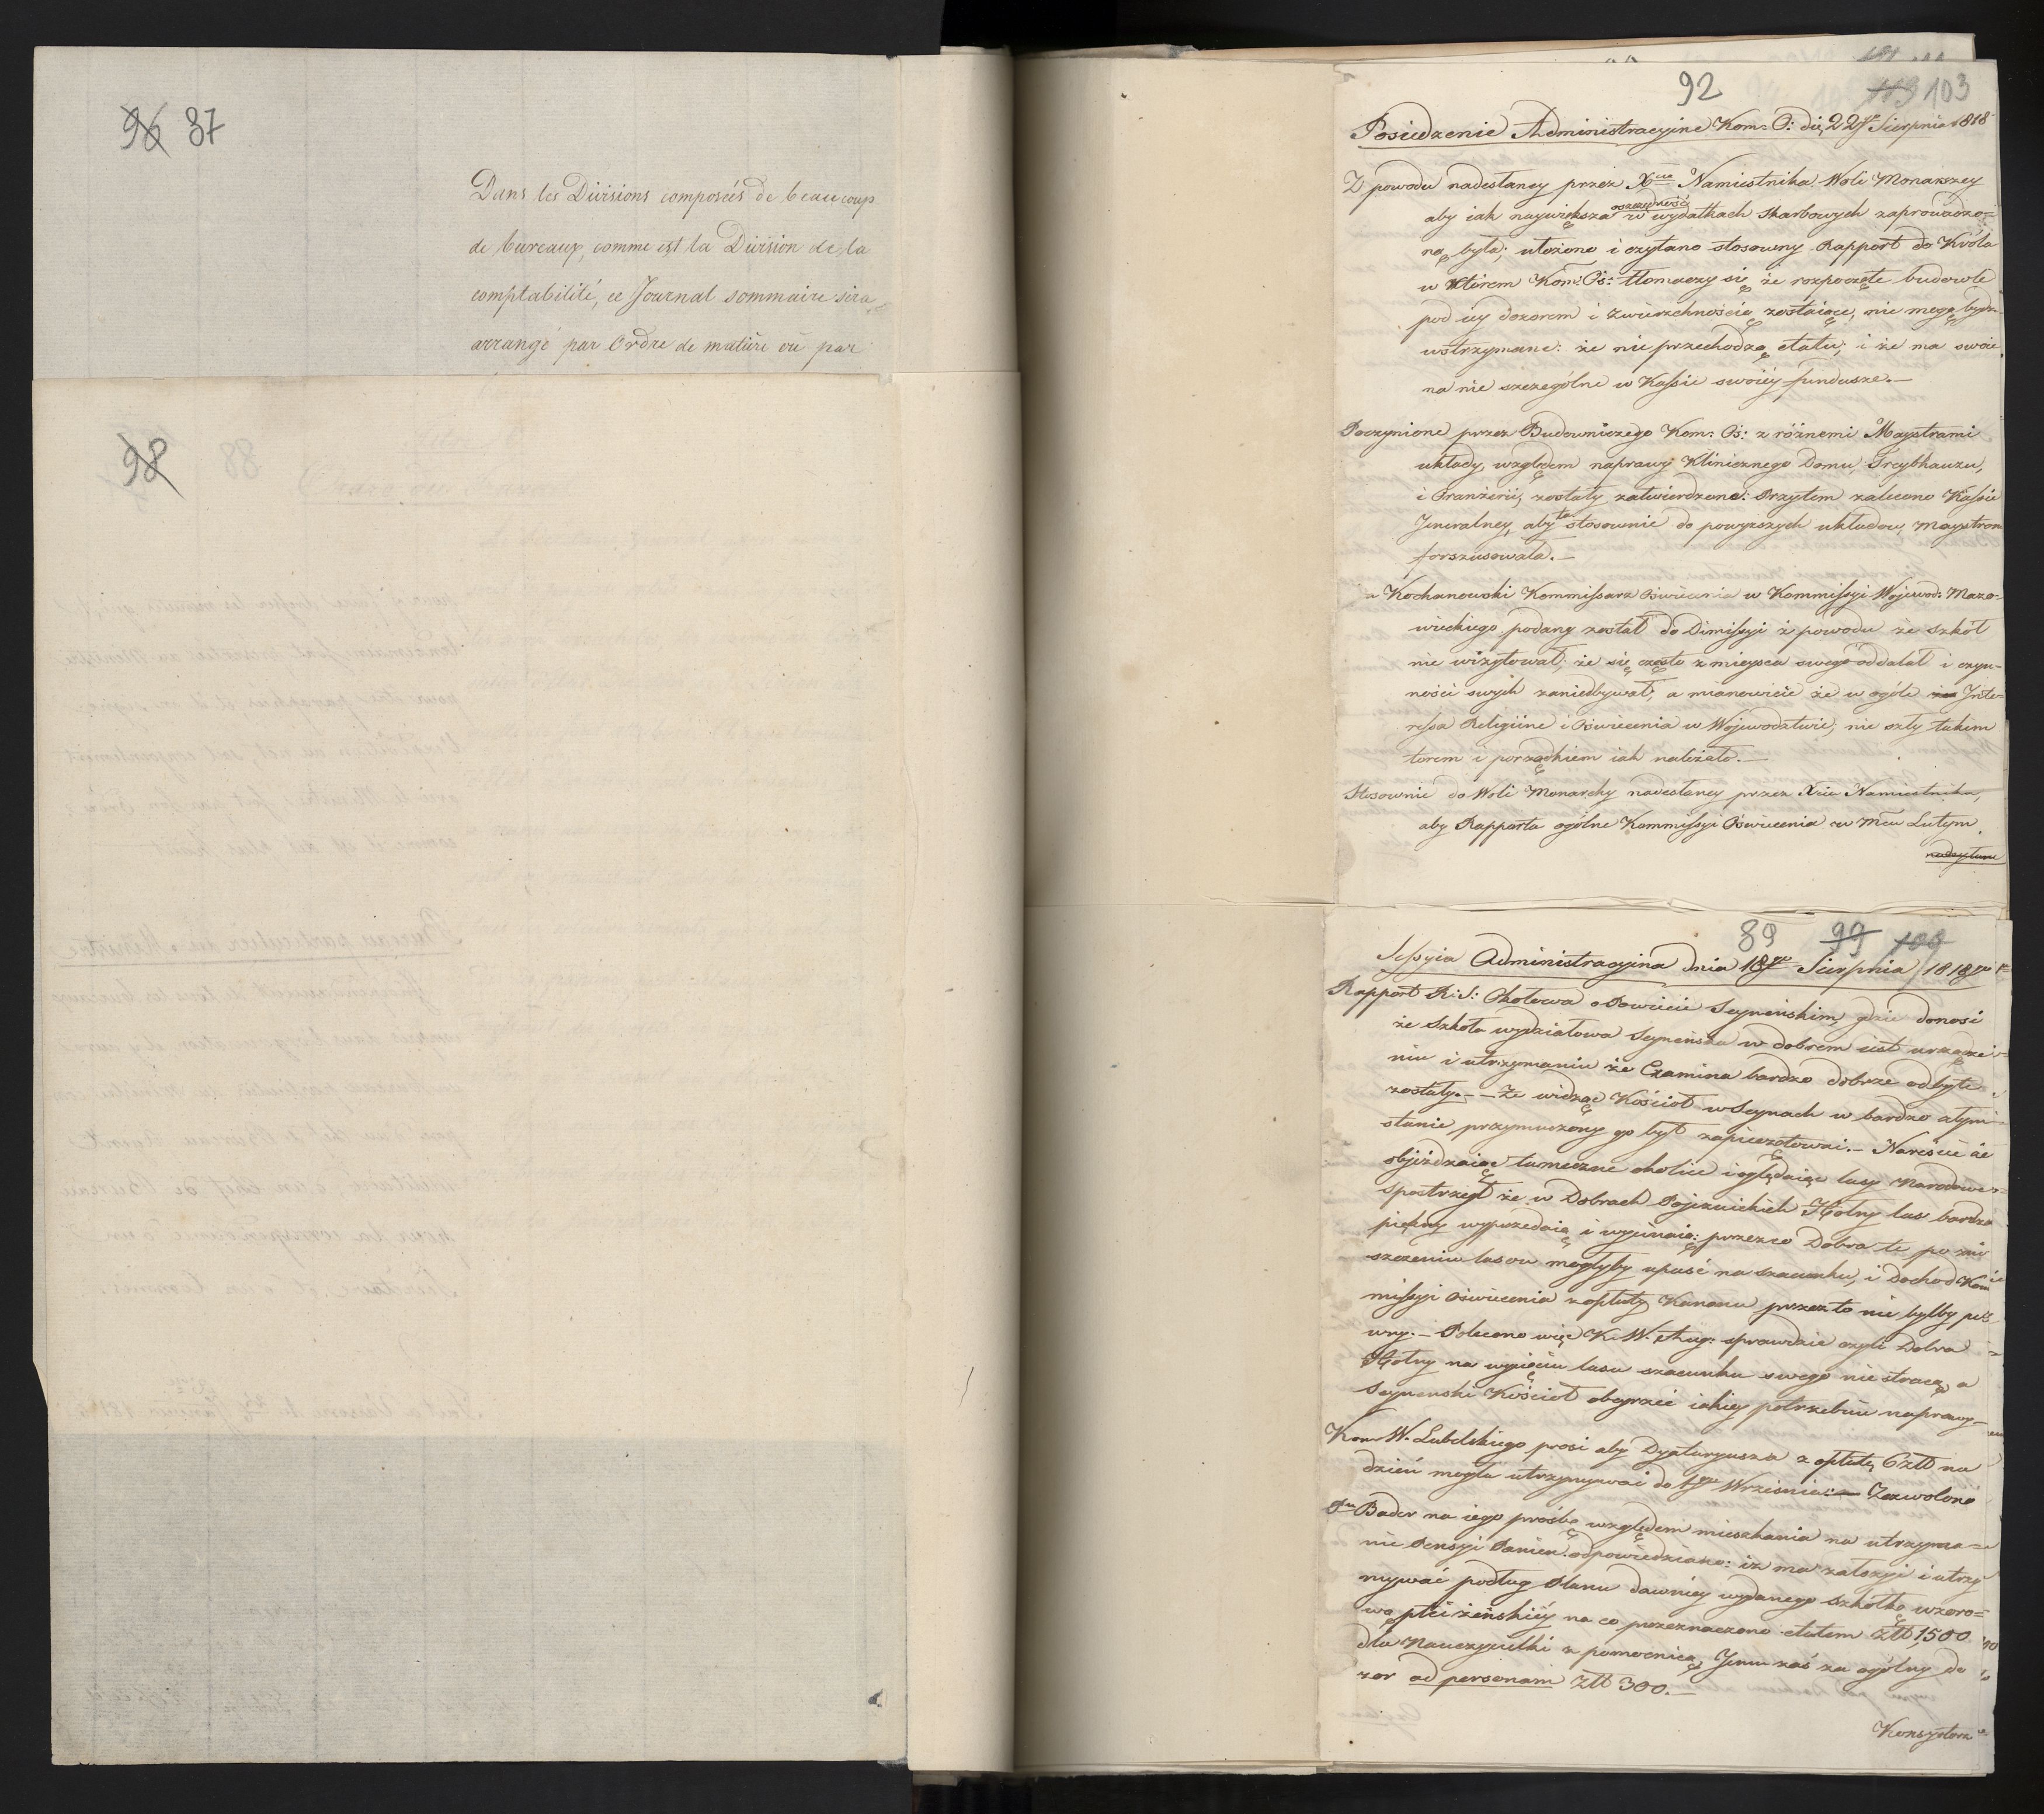 96 37
Dans les Divisions composées de beaucoup
de bureaux, comme est la Division de la
comptabilité, ce Journal sommaire sera
arrangé par Ordre de matière ou par
98
88
92
113 103
Posiedzenie Administracyine Kom: O: dię 22go Sierpnia 1818
Z powodu nadesłaney przez Xcia Namiestnika Woli Monarszey
aby iak naywiększa oszczędność w wydatkach Skarbowych zaprowadzo=
ną była; ułożono i czytano stosowny Rapport do Króla
w którem Kom: Oś: tłomaczy się że rozpoczęte budowle
pod iey dozorem i zwierzchnością zostaiące, nie mogą bydź
wstrzymane: że nie przechodzą etatu; i że ma swoie
na nie szczególne w Kassie swoiéy fundusze.—
Poczynione przez Budowniczego Kom: Oś: z różnemi Maystrami
układy, względem naprawy Klinicznego Domu, Treybhauzu,
i Oranżerii, zostały zatwierdzone: Przytem zalecono Kassie
Jeneralney, aby ta stosownie do powyższych układów, Maystrom
forszusowała.—
Kochanowski Kommissarz Oświecenia w Kommissyi Wojewod: Mazo=
wieckiego podany został do Dimissyi z powodu że szkół
nie wizytował, że się często z mieysca swego oddalał i czyn=
ności swych zaniedbywał, a mianowicie że w ogóle Jnte=
ressa Religiine i Oświecenia w Województwie, nie szły takim
torem i porządkiem iak należało.—
Stosownie do Woli Monarchy nadesłaney przez Xcia Namiestnika,
aby Rapporta ogólne Kommissyi Oświecenia w Mcu Lutym
nadsyłane
89 99 109
Sessyia Administracyina dnia 18go Sierpnia 1818go
Rapport R: S: Okołowa o Powiecie Seyneńskim, gdzie donosi
że Szkoła wydziałowa Seyneńska w dobrem iest urządze=
niu i utrzymaniu że Examina bardzo dobrze odbyte
zostały.— Że widząc Kościoł w Seynach w bardzo złym
stanie przymuszony go był zapieczętować.— Nareście że
objeżdzaiąc tameczne okolice i oglądaiąc lasy Narodowe
spostrzegł że w Dobrach Pojezuickich Hołny las bardzo
piękny wyprzedaią i wycinaią; przezco Dobra te po zni
szczeniu lasow mogłyby upaść na szacunku, i Dochod Kom
missyi Oświecenia z opłaty Kanonu przez to nie byłby pe
wny.— Polecono więc K. W. Aug: sprawdzić czyli Dobra
Hołny na wycięciu lasu szacunku swego nie stracą, a
Seyneński Kościoł obeyrzeć iakiey potrzebuie naprawy—
Kom W. Lubelskiego prosi aby Dyetaryusza z opłatą 6 złł na
dzień mogła utrzymywać do 1go Września:— Zezwolono
Pu Bader na iego prośbę względem mieszkania na utrzyma=
nie Pensyi Panien odpowiedziano: iż ma założyć i utrzy
mywać podług Planu dawniey wydanego szkołkę wzoro=
wą płci żeńskiéy na co przeznaczono etatem Złł 1500
dla Nauczycielki z pomocnicą, Jemu zaś za ogólny do
zor ad personam Złł 300.—
Konsystorz